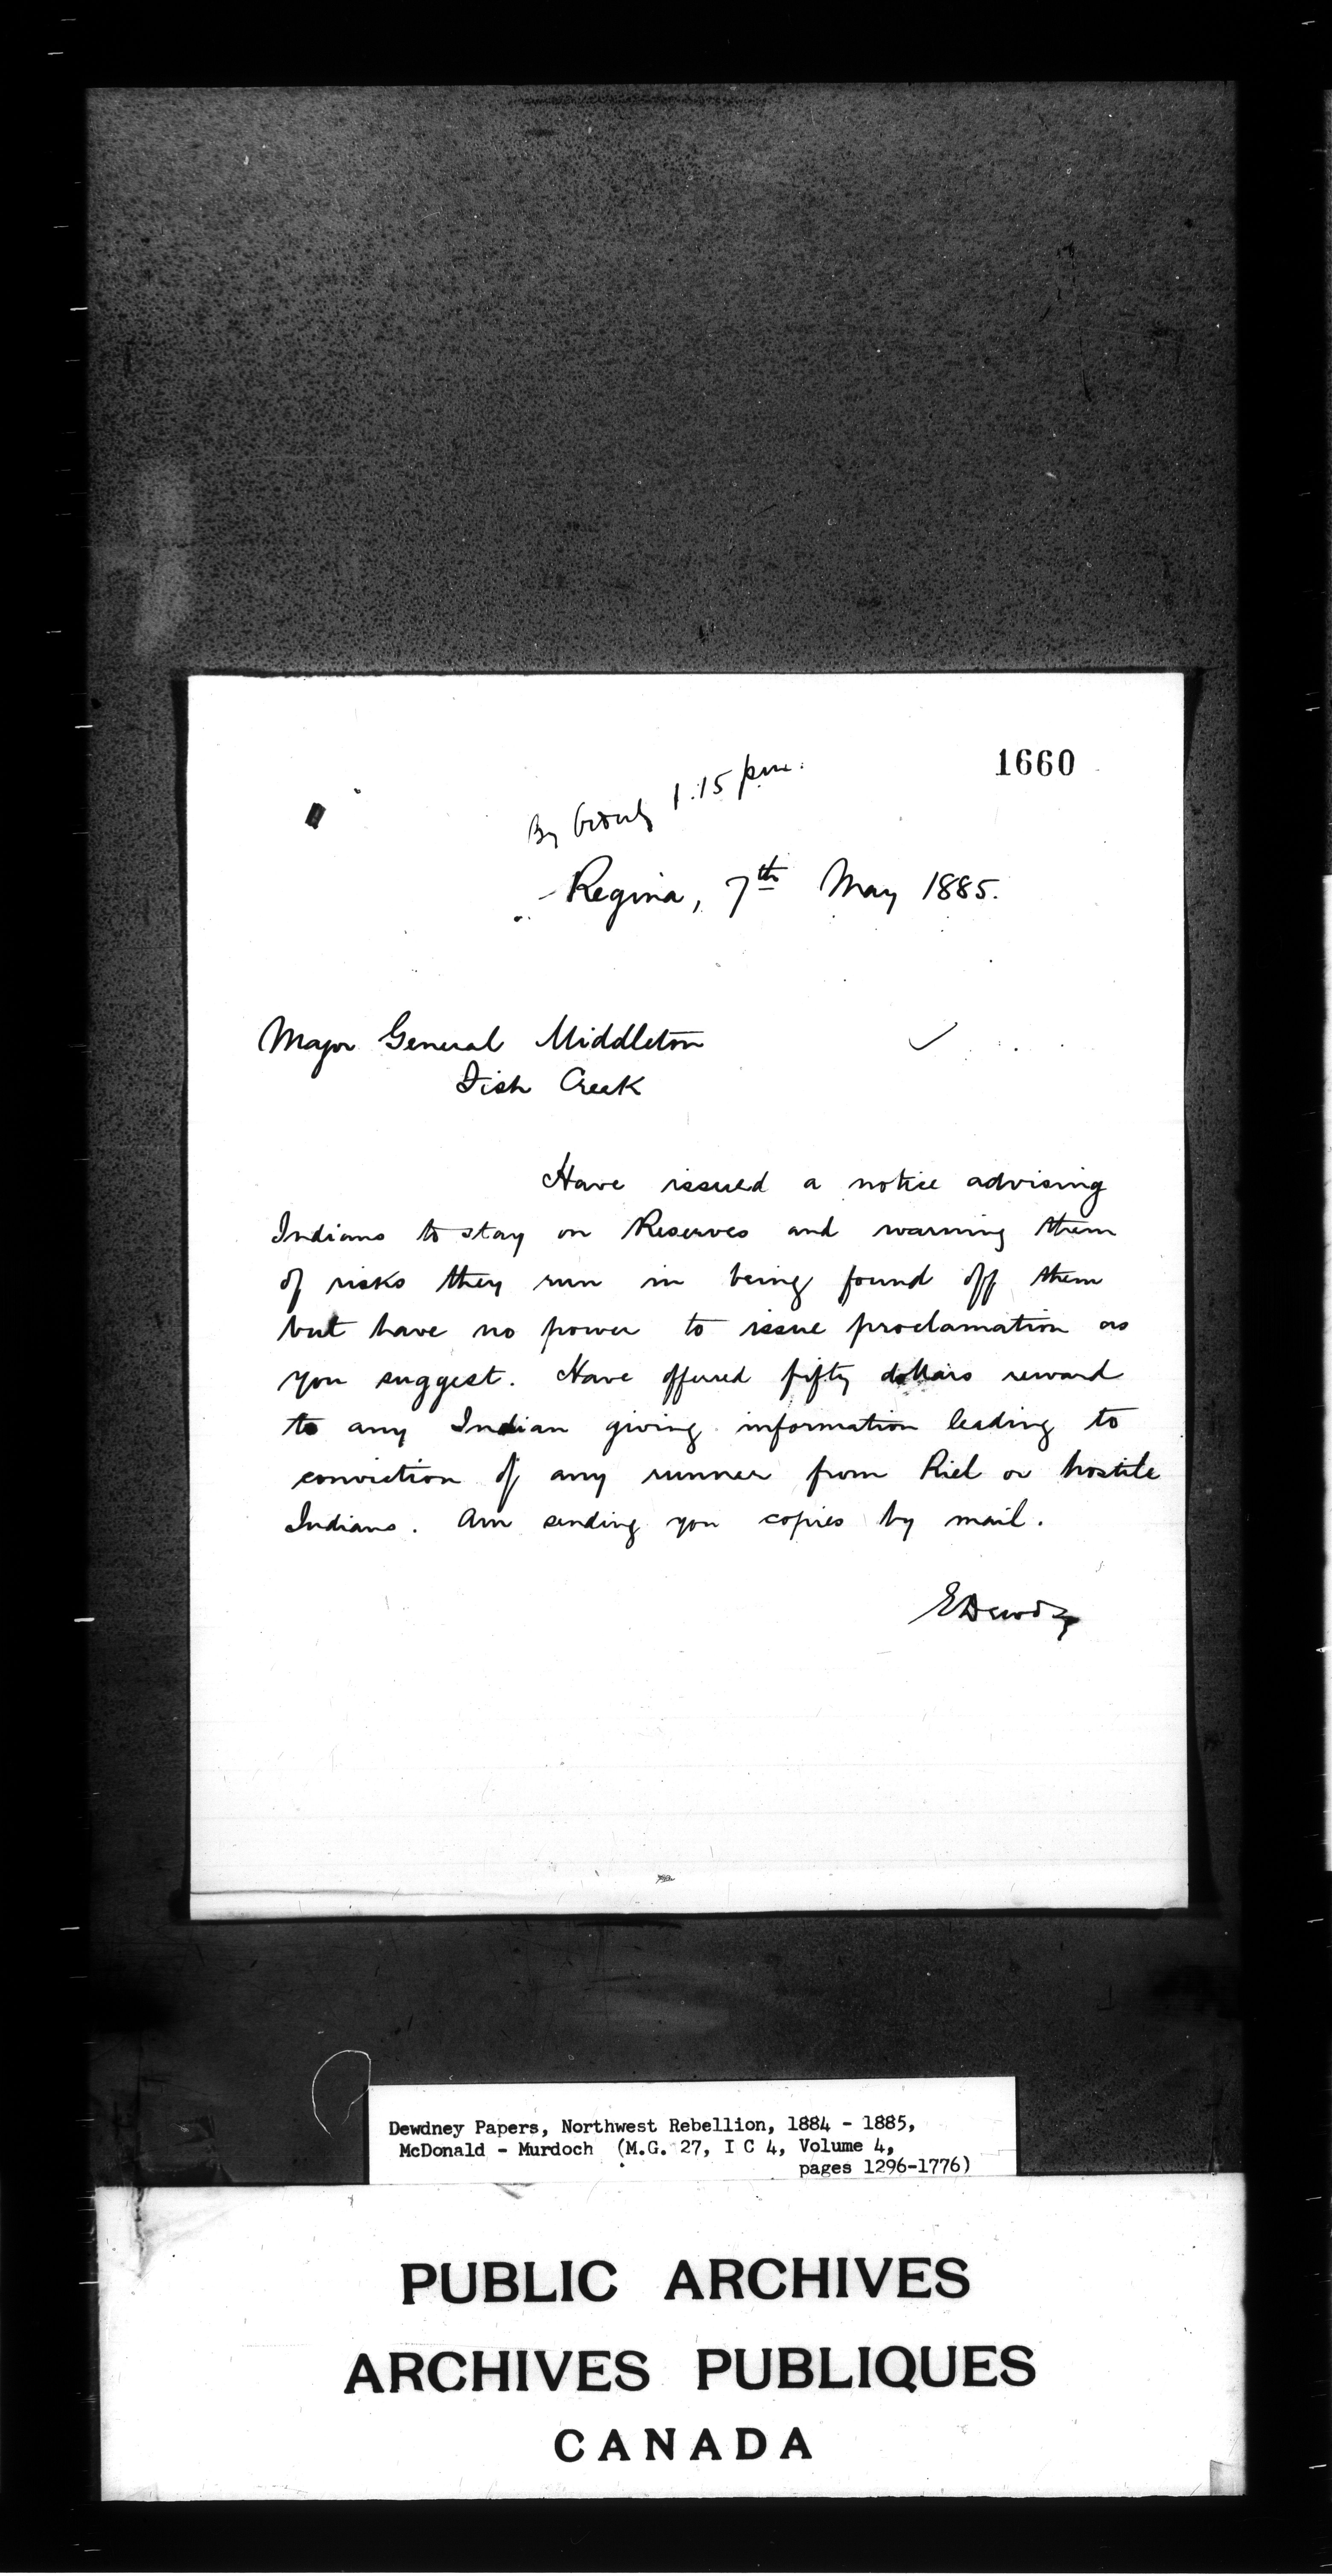 1660
By 1.15 pm.
Regina, 7th May 1885.
Major General Middleton
Fish Creek
Have issued a notice advising
Indians to stay on Reserves and warning them
of risks they run in being found off them
but have no power to issue proclamation as
you suggest. Have offered fifty dollars reward
to any Indian giving information leading to
conviction of any runner from Riel or hostile
Indians. Am sending you copies by mail.
E Dewdney
Dewdney Papers, Northwest Rebellion, 1884 - 1885,
McDonald - Murdoch (M.G. 27, I C 4, Volume 4,
pages 1296-1776)
PUBLIC ARCHIVES
ARCHIVES PUBLIQUES
CANADA